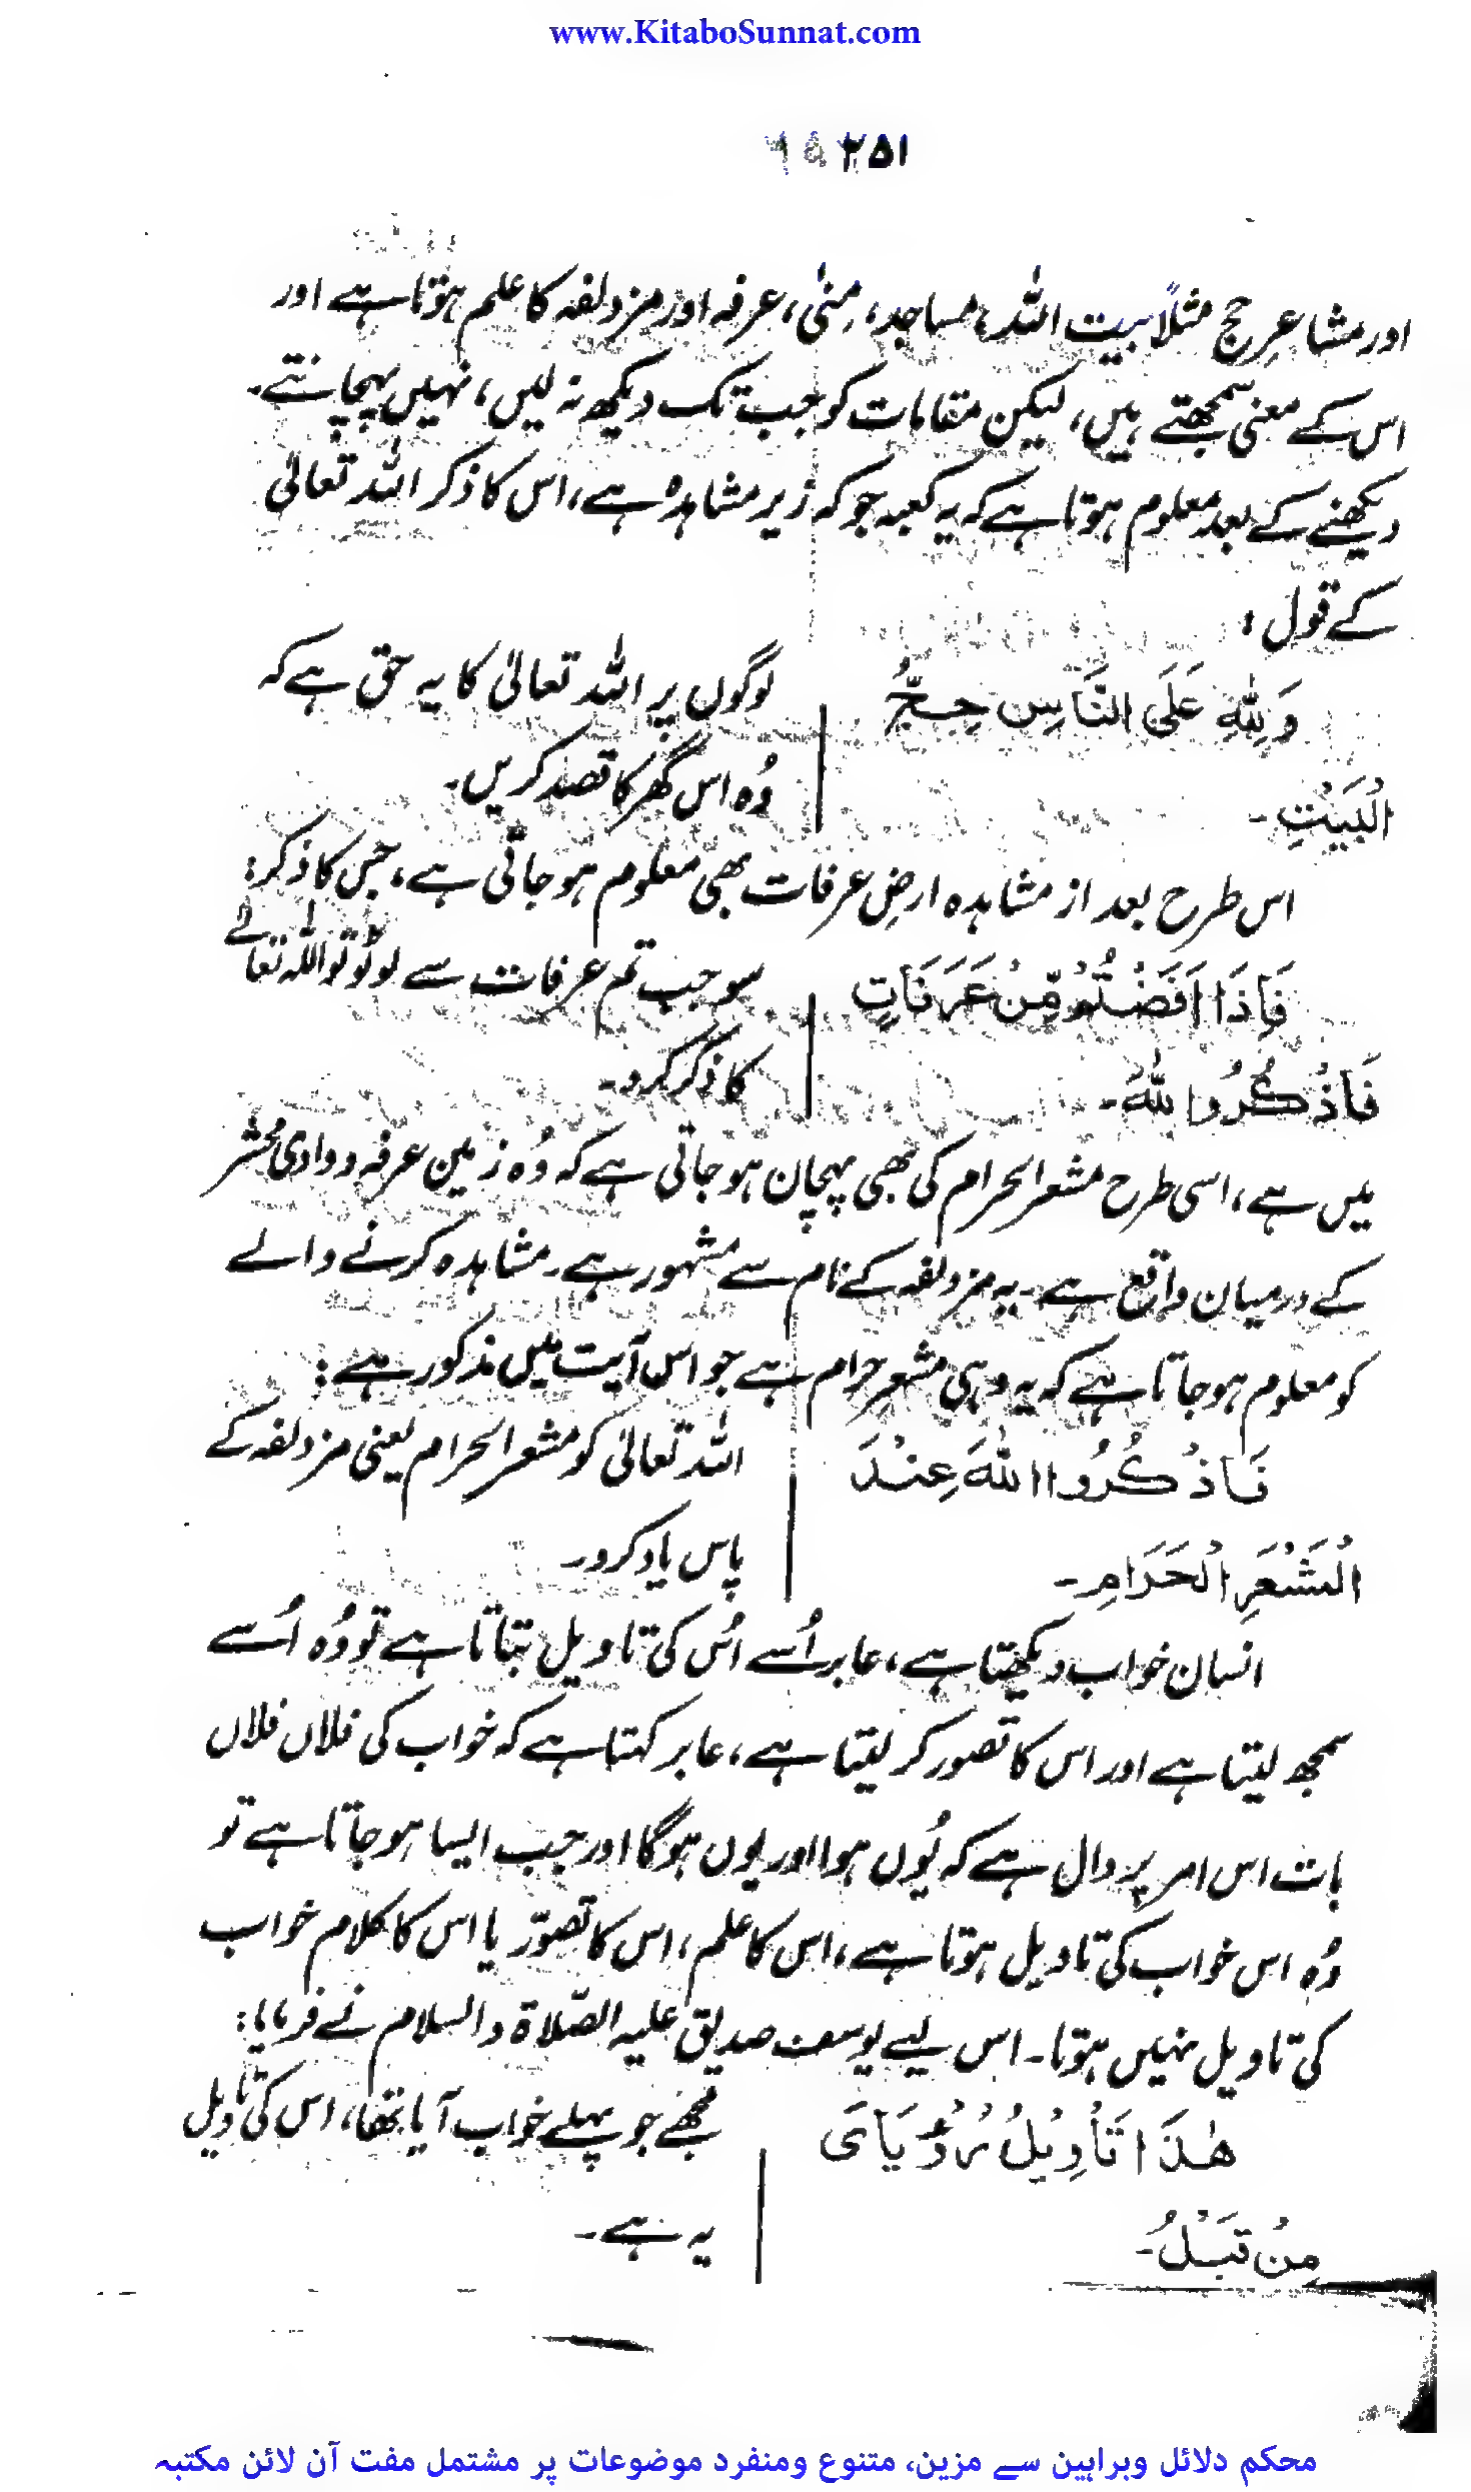 www.KitaboSunnat.com
۲۵۱
اور مشاعرِ حج مثلاً بیت اللہ، مساجد، مِنیٰ، عرفہ اور مزدلفہ کا علم ہوتا ہے اور
اس کے معنی سمجھتے ہیں، لیکن مقامات کو جب تک دیکھ نہ لیں، نہیں پہچانتے۔
دیکھنے کے بعد معلوم ہوتا ہے کہ یہ کعبہ جو کہ زیر مشاہدہ ہے، اس کا ذکر اللہ تعالیٰ
کے قول :
وَلِلّٰهِ عَلَى النَّاسِ حِجُّ
الْبَيْتِ۔
لوگوں پر اللہ تعالیٰ کا یہ حق ہے کہ
وُہ اس گھر کا قصد کریں۔
اس طرح بعد از مشاہدہ ارضِ عرفات بھی معلوم ہو جاتی ہے، جس کا ذکر :
فَاِذَا اَفَضْتُمْ مِّنْ عَرَفَاتٍ
فَاذْكُرُوا اللّٰهَ۔
سو جب تم عرفات سے لوٹو تو اللہ تعالےٰ
کا ذکر کرو۔
میں ہے، اسی طرح مشعر الحرام کی بھی پہچان ہو جاتی ہے کہ وُہ زمین عرفہ و وادی محشر
کے درمیان واقع ہے۔ یہ مزدلفہ کے نام سے مشہور ہے۔ مشاہدہ کرنے والے
کو معلوم ہو جاتا ہے کہ یہ وہی مشعرِ حرام ہے جو اس آیت میں مذکور ہے :
فَاذْكُرُوا اللّٰهَ عِنْدَ
الْمَشْعَرِ الْحَرَامِ۔
اللہ تعالیٰ کو مشعر الحرام یعنی مزدلفہ کے
پاس یاد کرو۔
انسان خواب دیکھتا ہے، عابر اُسے اُس کی تاویل بتاتا ہے تو وُہ اُسے
سمجھ لیتا ہے اور اس کا تصور کر لیتا ہے، عابر کہتا ہے کہ خواب کی فلاں فلاں
بات اس امر پر دال ہے کہ یُوں ہوا اور یوں ہوگا اور جب ایسا ہو جاتا ہے تو
وُہ اس خواب کی تاویل ہوتا ہے، اس کا علم، اس کا تصوّر یا اس کا کلام خواب
کی تاویل نہیں ہوتا۔ اس لیے یوسف صدیق علیہ الصّلاۃ والسلام نے فرمایا :
هٰذَا تَأْوِيْلُ رُؤْيَایَ
مِنْ قَبْلُ۔
مجھے جو پہلے خواب آیا تھا، اس کی تاویل
یہ ہے۔
محکم دلائل وبراہین سے مزین، متنوع ومنفرد موضوعات پر مشتمل مفت آن لائن مکتبہ